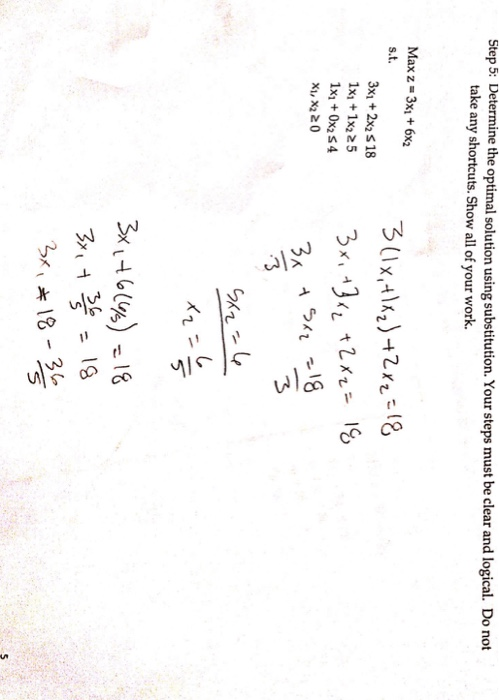 Step 5: Determine the optimal solution using substitution. Your steps must be clear and logical. Do not
take any shortcuts. Show all of your work.
Max z = 3x₁ + 6x₂
s.t.
3x₁ + 2x₂ ≤ 18
1x₁ + 1x₂ ≥ 5
1x₁ + 0x₂ ≤ 4
x₁, x₂ ≥ 0
3(1x₁+1x₂)+2x₂=18
3x₁+3x₂+2x₂= 18
3x/3 + 5x₂ = 18/3
5x₂ = 6
x₂ = 6/5
3x₁+6(6/5) = 18
3x₁ + 36/5 = 18
3x₁ = 18 - 36/5
5